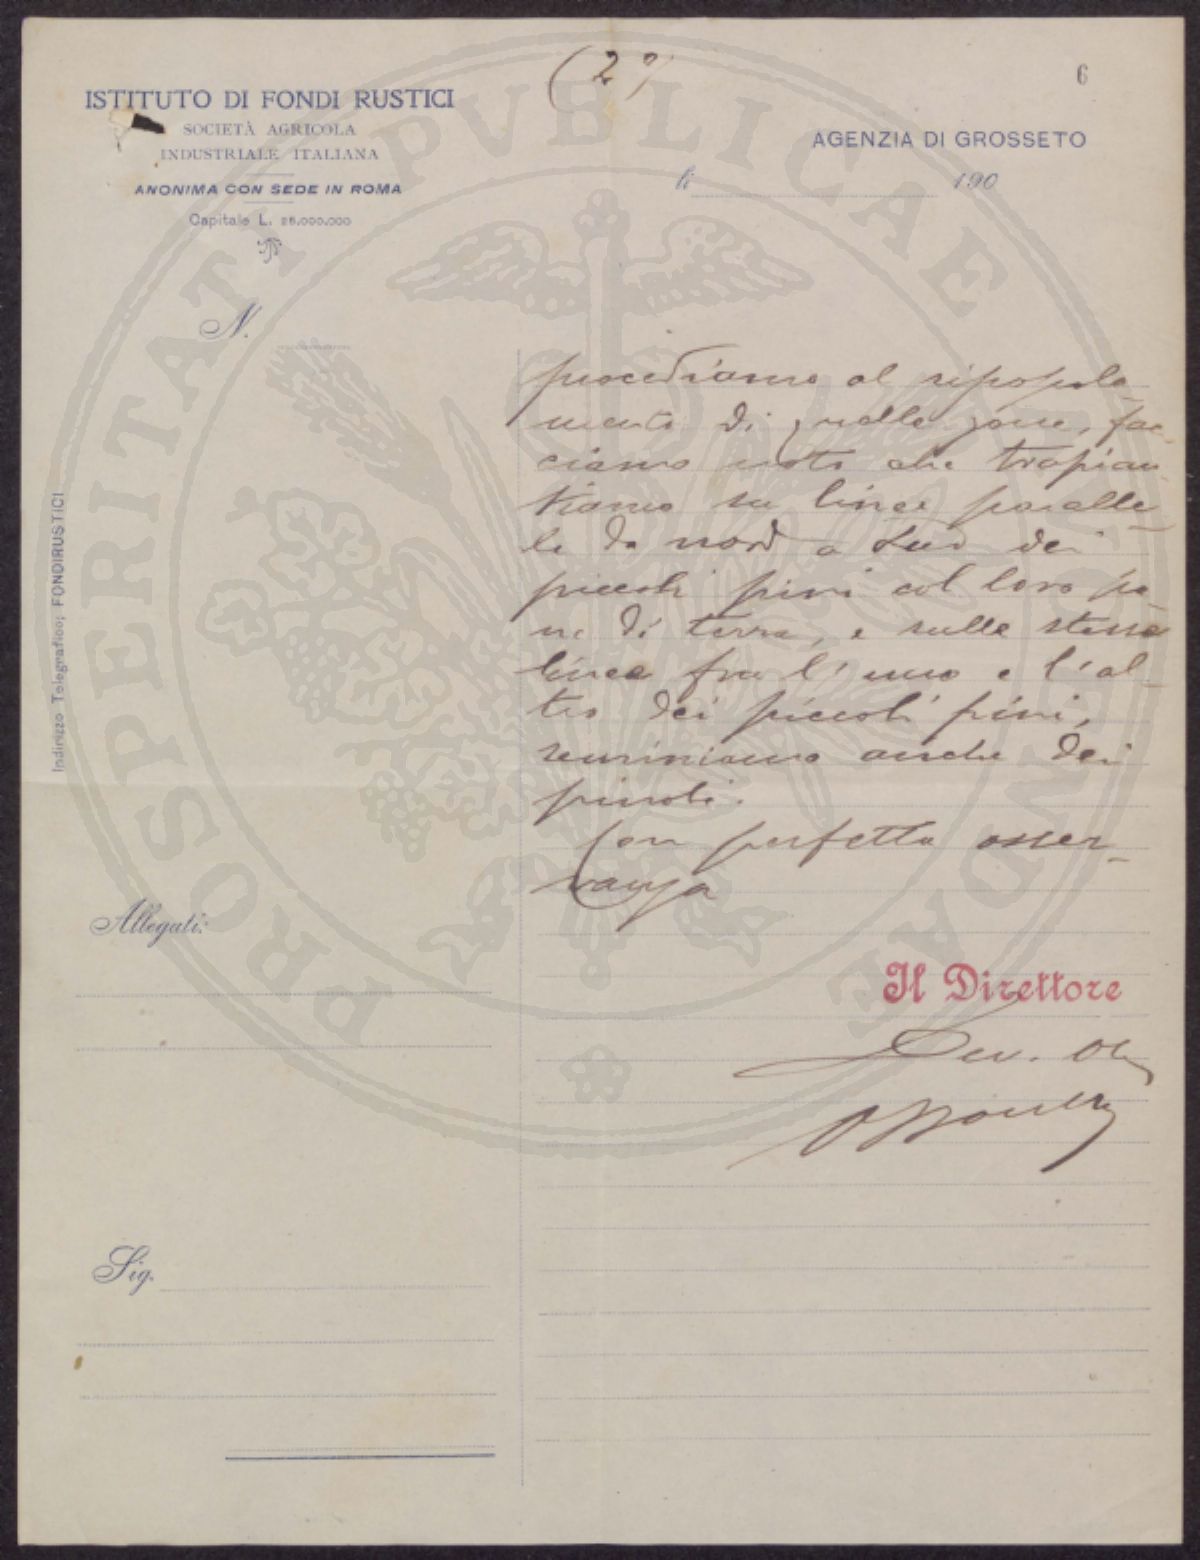 (2°)
6
ISTITUTO DI FONDI RUSTICI
SOCIETÀ AGRICOLA
INDUSTRIALE ITALIANA
ANONIMA CON SEDE IN ROMA
Capitale L. 25.000.000
AGENZIA DI GROSSETO
li 190
N.
Indirizzo Telegrafico: FONDIRUSTICI
procediamo al ripopola-
mento di quelle zone, fac-
ciamo noto che trapian-
tiamo su linee paralle-
le da nord a Sud dei
piccoli pini col loro pa-
ne di terra, e sulle stesse
linee fra l'uno e l'al-
tro dei piccoli pini,
seminiamo anche dei
pinoli.
Con perfetta osser-
vanza
Allegati:
Il Direttore
Dev.
Sig.
PROSPERITATI PVBLICAE AVGENDAE